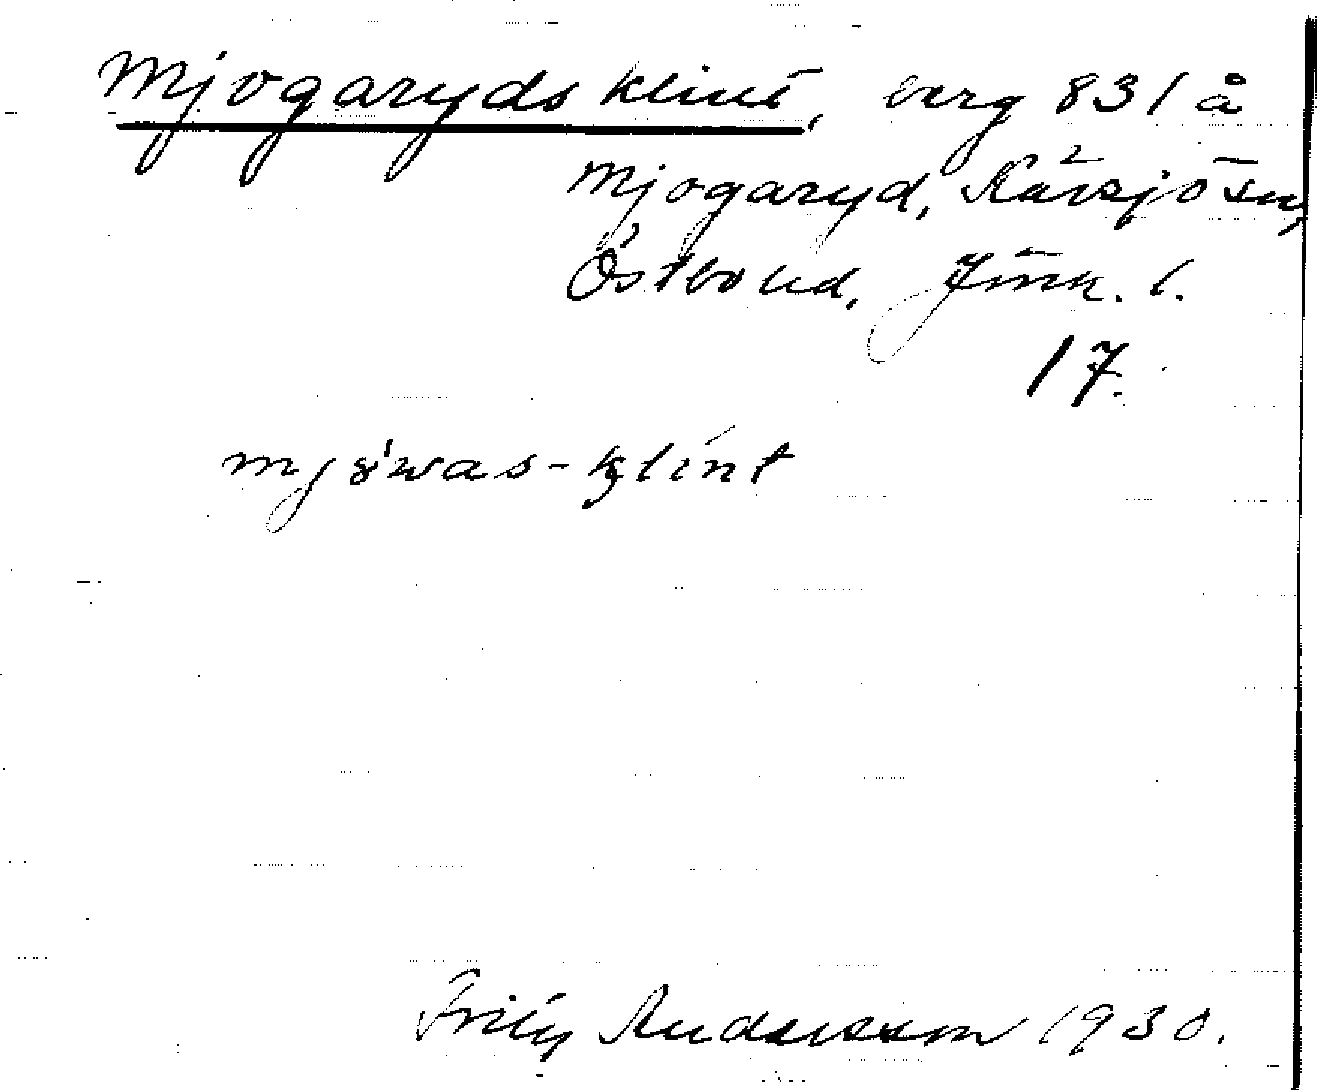 Mjogaryds klint, berg 831 å
Mjogaryd, Kävsjö sn,
Östbo hd, Jönk. l.
17.
mjǒ́was-klint
Fritz Andersson 1930.